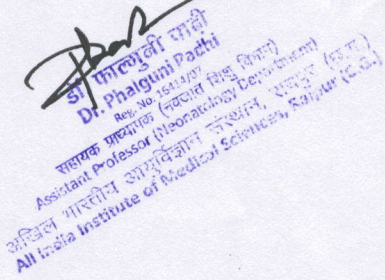 डॉ. फाल्गुनी पाढी
Dr. Phalguni Padhi
Reg. No. 16434/07
सहायक प्राध्यापक (नवजात शिशु विभाग)
Assistant Professor (Neonatology Department)
अखिल भारतीय आयुर्विज्ञान संस्थान, रायपुर (छ.ग.)
All India Institute of Medical Sciences, Raipur (C.G.)